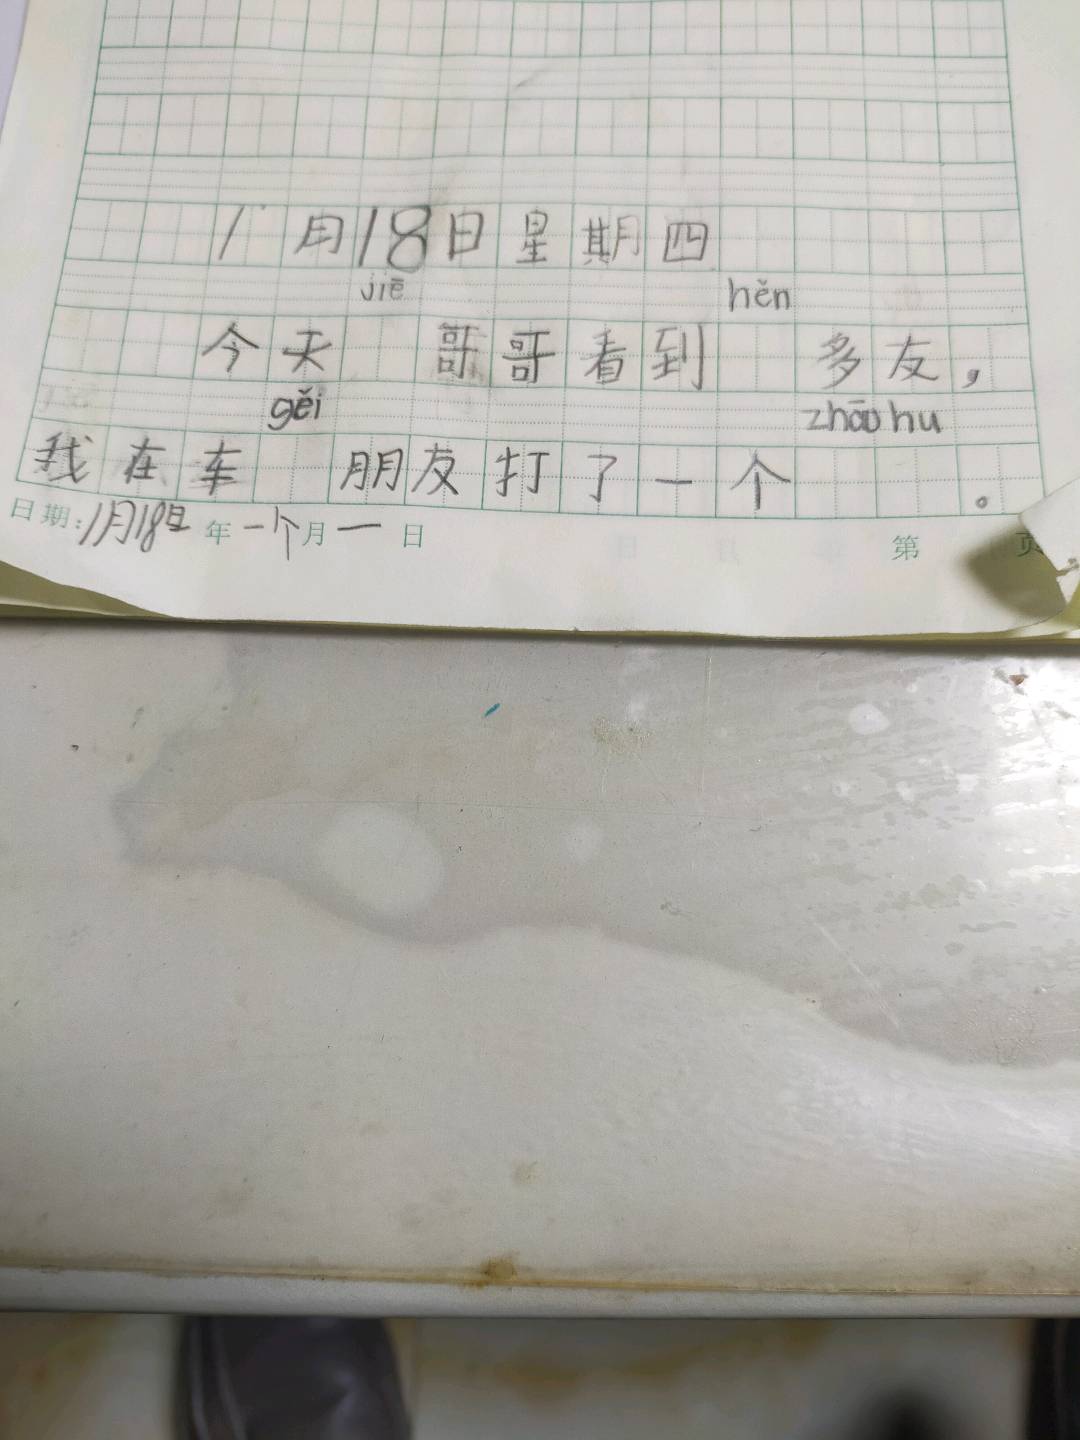 1月18日星期四
jiē hěn
今天 哥哥看到 多友，
gěi zhāo hu
我在车 朋友打了一个 。
日期：1月18日 年 一个月一 日 第 页